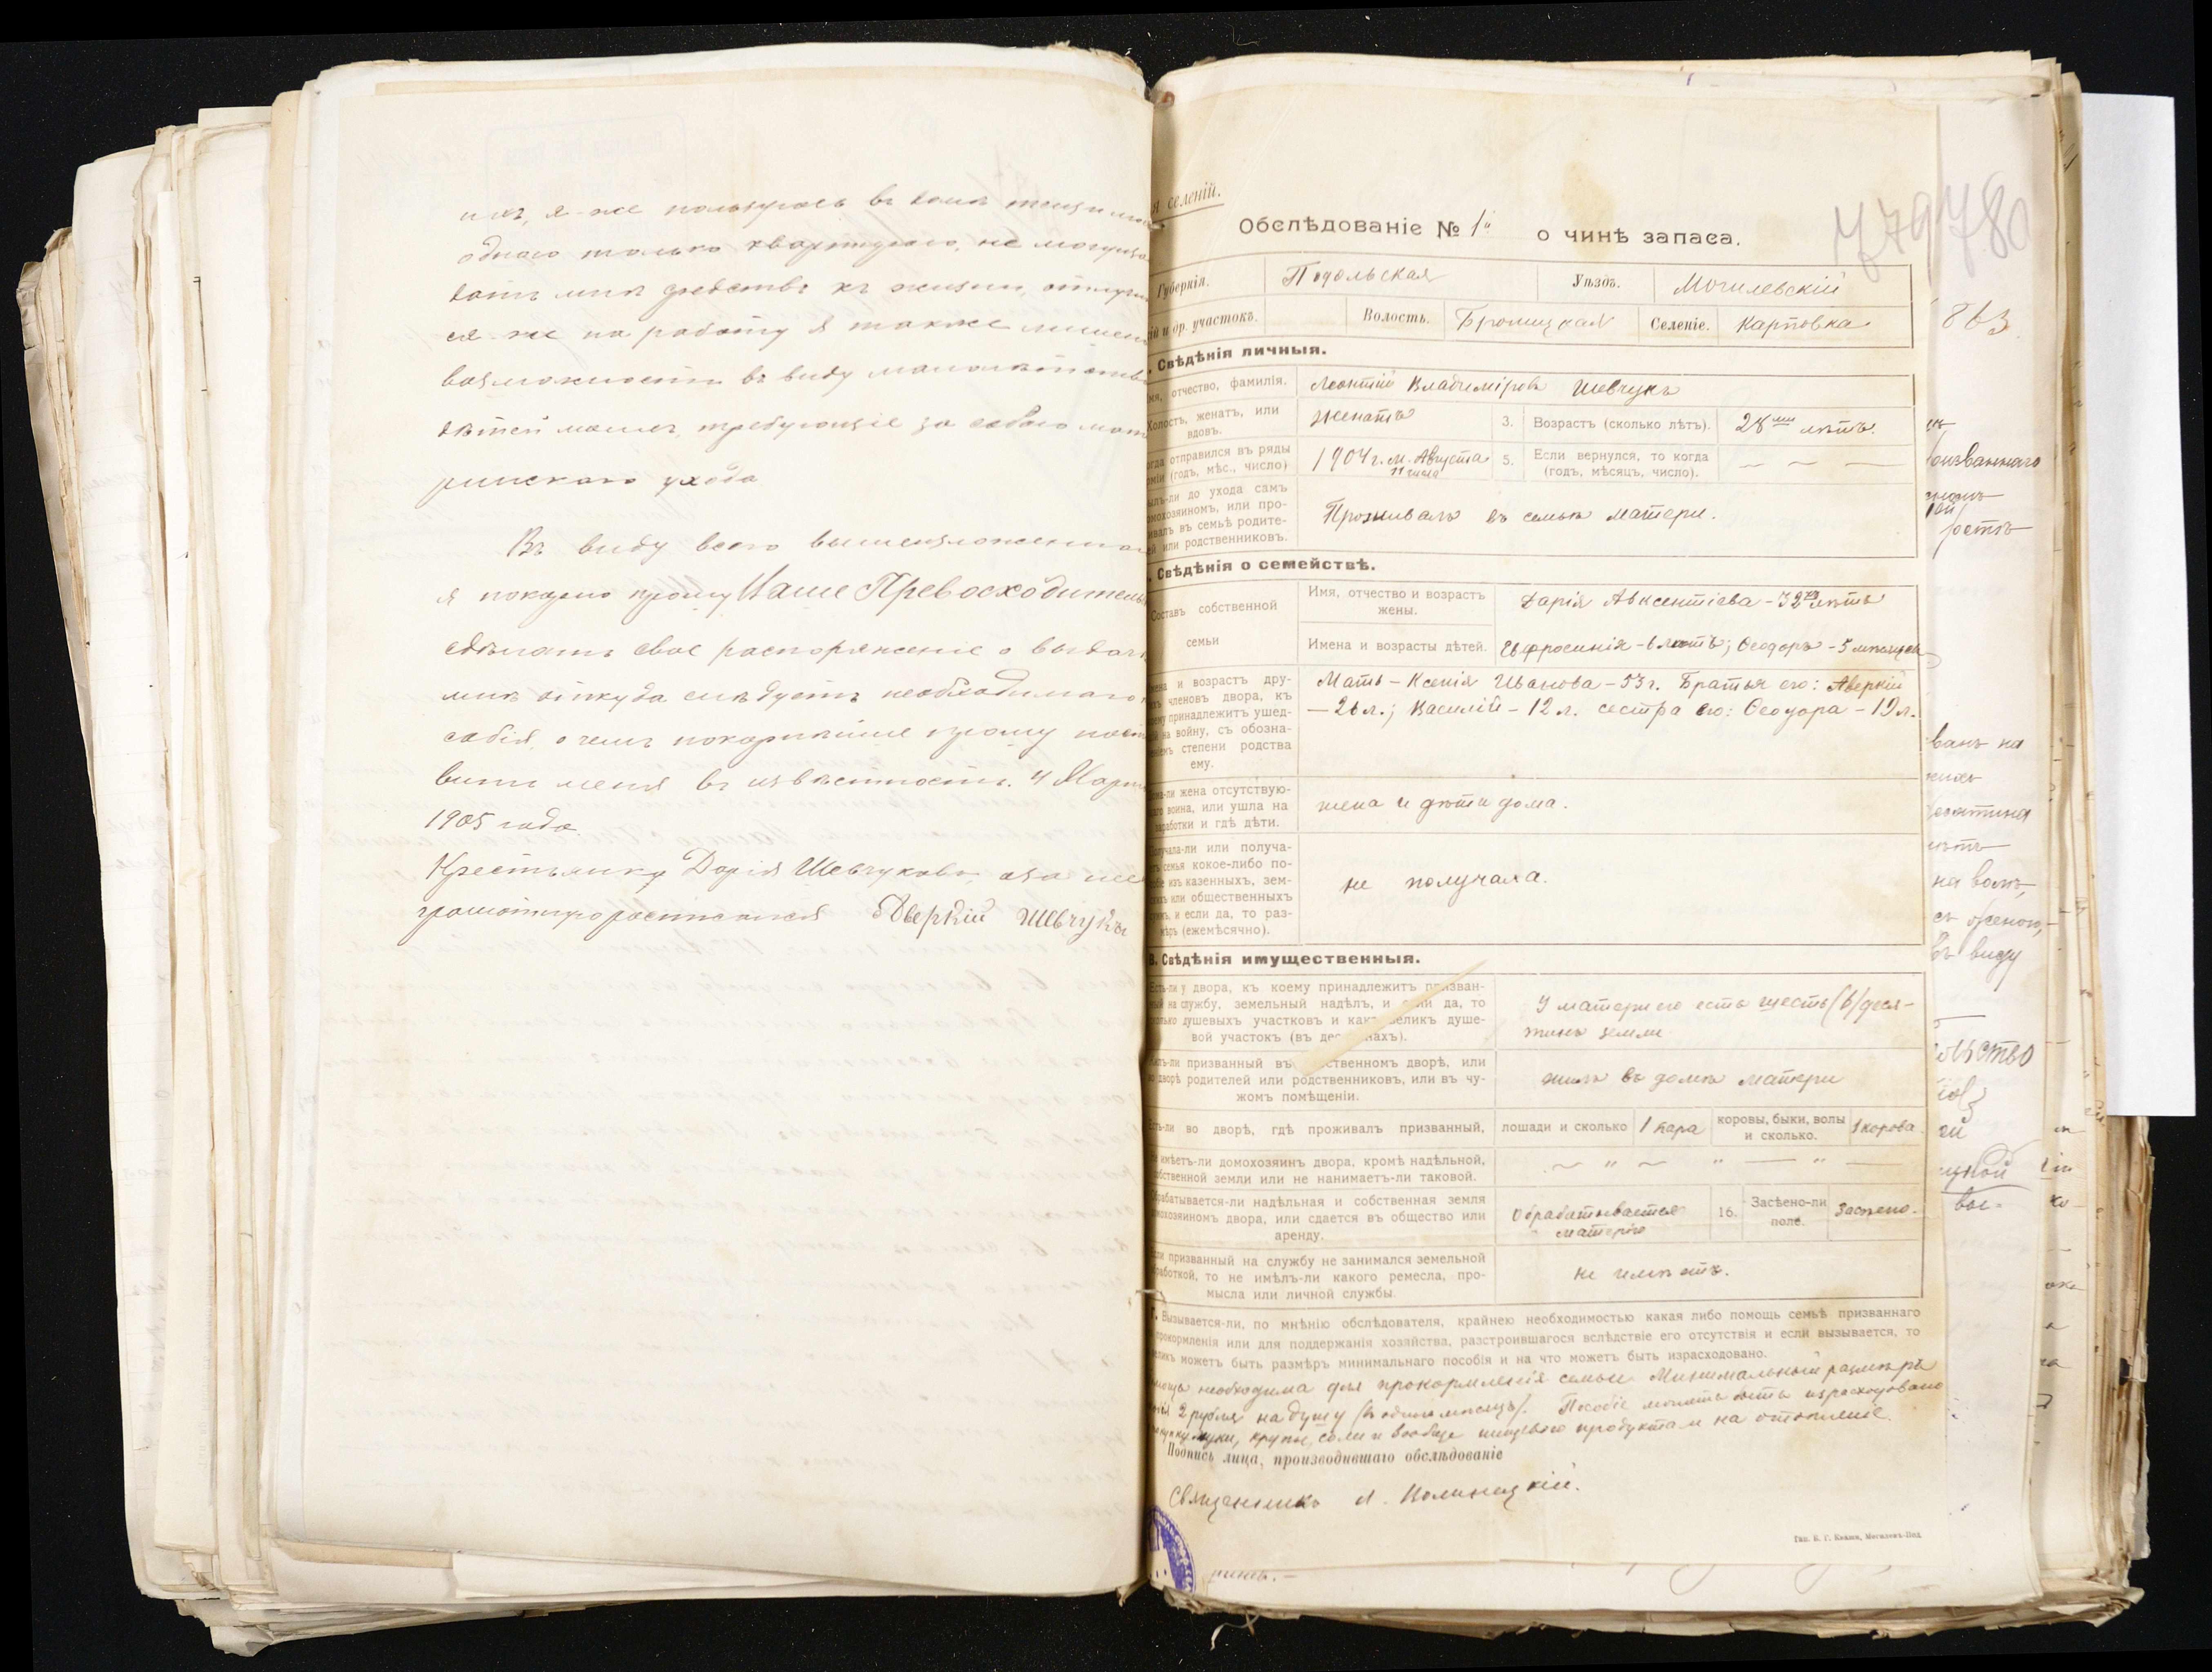 ихъ, я-же пользуюсь въ
одного только квартирою, не могуща
дать мнѣ средствъ къ жизни,
ся-же на работу я также лишен
возможности въ виду малолѣтств
дѣтей моихъ, требующіе за собою мат
ринскаго ухода
Въ виду всего вышеизложенна
я покорно прошу Ваше Превосходитель
сдѣлать свое распоряженіе о выдач
мнѣ откуда слѣдуетъ необходимаго
собія, о чемъ покорнѣйше прошу поста
вить меня въ извѣстность. 4 Март
1905 года.
Крестьянка Дарія Шевчукова, а за нее
неграмотную росписался Аверкій Шевчукъ
я селеній.
779 780
Обслѣдованіе № 1й о чинѣ запаса.
Губернія. Подольская Уѣздъ. Могилевскій
ій и др. участокъ. Волость. Селеніе. Карповка
863
. Свѣдѣнія личныя.
мя, отчество, фамилія. Леонтій Владиміровъ Шевчукъ
Холостъ, женатъ, или вдовъ. женатъ 3. Возрастъ (сколько лѣтъ). 28ми лѣтъ.
огда отправился въ ряды
рміи (годъ, мѣс., число) 1904 г. м. Августа 11 числа 5. Если вернулся, то когда (годъ, мѣсяцъ, число). — ~ —
ылъ-ли до ухода самъ
омохозяиномъ, или про-
ивалъ въ семьѣ родите-
ей или родственниковъ.
Проживалъ въ семьѣ матери.
. Свѣдѣнія о семействѣ.
Составъ собственной
семьи
Имя, отчество и возрастъ жены. Дарія Авксентіева - 32хъ лѣтъ
Имена и возрасты дѣтей. Евфросинія - 6 лѣтъ; Ѳеодоръ - 5 мѣсяцевъ
мена и возрастъ дру-
хъ членовъ двора, къ
ему принадлежитъ ушед-
ій на войну, съ обозна-
ніемъ степени родства
ему.
Мать - Ксенія Иванова - 53 г. Братья его: Аверкій
— 26 л.; Василій - 12 л. сестра его: Ѳеодора - 19 л.
ома-ли жена отсутствую-
аго воина, или ушла на
заработки и гдѣ дѣти.
жена и дѣти дома.
олучала-ли или получа-
тъ семья какое-либо по-
обіе изъ казенныхъ, зем-
скихъ или общественныхъ
суммъ, и если да, то раз-
мѣръ (ежемѣсячно).
не получала.
В. Свѣдѣнія имущественныя.
Есть-ли у двора, къ коему принадлежитъ призван-
ный на службу, земельный надѣлъ, и если да, то
сколько душевыхъ участковъ и какъ великъ душе-
вой участокъ (въ десятинахъ).
У матери его есть шесть (6) деся-
тинъ земли
илъ-ли призванный въ собственномъ дворѣ, или
во дворѣ родителей или родственниковъ, или въ чу-
жомъ помѣщеніи.
жилъ въ домѣ матери
сть-ли во дворѣ, гдѣ проживалъ призванный, лошади и сколько 1 пара коровы, быки, волы и сколько. 1 корова.
е имѣетъ-ли домохозяинъ двора, кромѣ надѣльной,
обственной земли или не нанимаетъ-ли таковой.
~ " ~ " — " —
брабатывается-ли надѣльная и собственная земля
омохозяиномъ двора, или сдается въ общество или
аренду.
Обрабатывается
матерію
16. Засѣено-ли поле. Засѣено.
сли призванный на службу не занимался земельной
работкой, то не имѣлъ-ли какого ремесла, про-
мысла или личной службы.
не имѣетъ.
Г. Вызывается-ли, по мнѣнію обслѣдователя, крайнею необходимостью какая либо помощь семьѣ призваннаго
прокормленія или для поддержанія хозяйства, разстроившагося вслѣдствіе его отсутствія и если вызывается, то
еликъ можетъ быть размѣръ минимальнаго пособія и на что можетъ быть израсходовано.
мощь необходима для прокормленія семьи Минимальный размѣръ
2 рубля на душу (въ одинъ мѣсяцъ). Пособіе можетъ быть израсходовано
муки, крупы, соли и вообще продуктам на отопленіе.
Подпись лица, производившаго обслѣдованіе
Священникъ
Тип. Могилевъ-Под.
ризваннаго
ванъ на
на волъ,
съ женою,
въ виду
ольство
ой
вос-